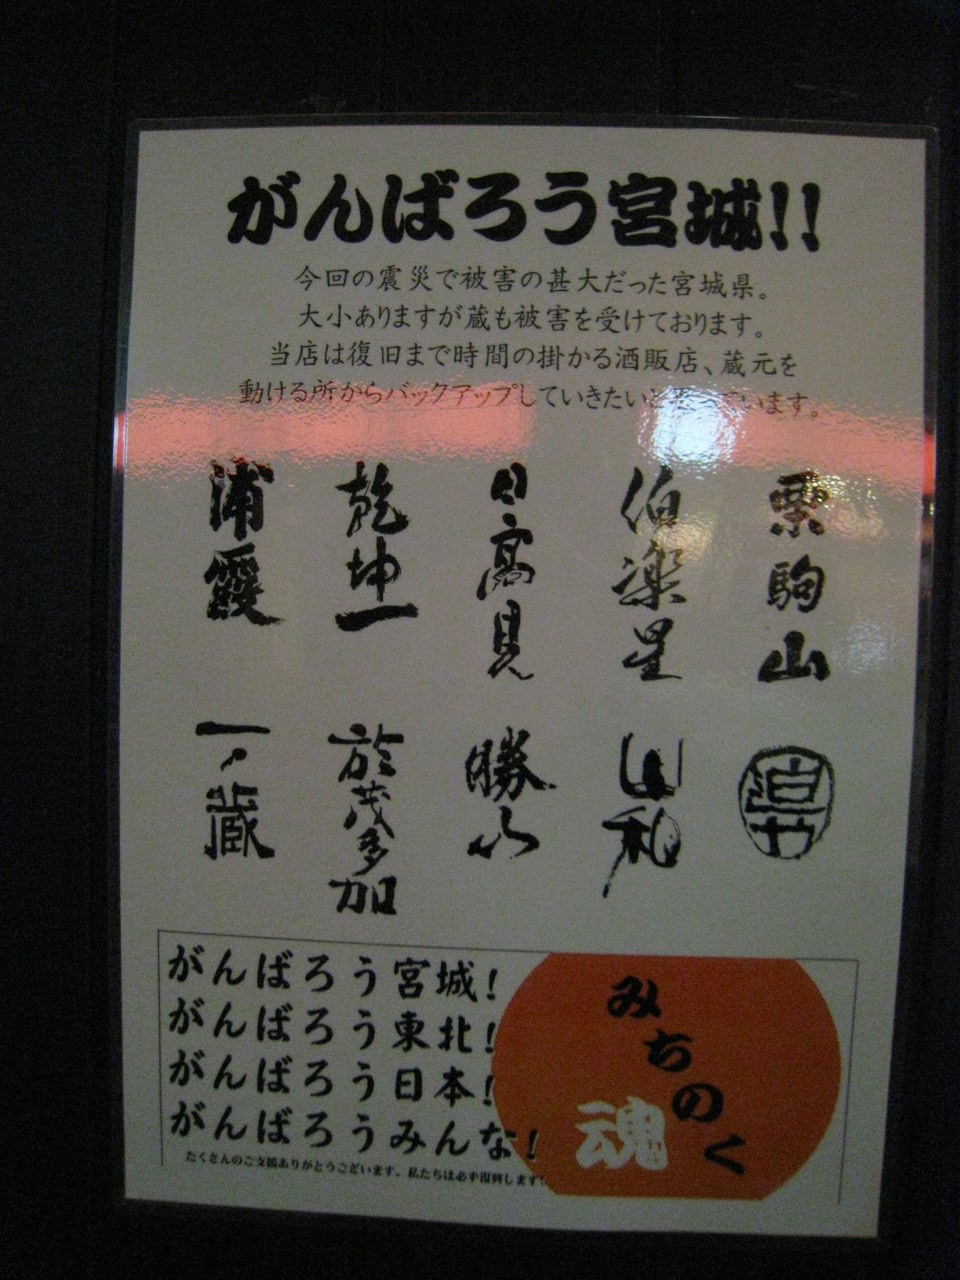 がんばろう宮城!!
今回の震災で被害の甚大だった宮城県。
大小ありますが蔵も被害を受けております。
当店は復旧まで時間の掛かる酒販店、蔵元を
動ける所からバックアップしていきたいと思っています。
栗駒山
伯楽星
日高見
乾坤一
浦霞
山和
勝山
於茂多加
一ノ蔵
がんばろう宮城!
がんばろう東北!
がんばろう日本!
がんばろうみんな!
たくさんのご支援ありがとうございます。私たちは必ず復興します!
みちのく
魂